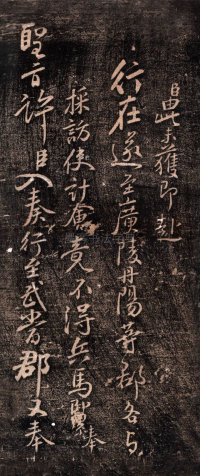 此未獲即赴
行在遂至廣陵丹陽等郡各与
採訪使計會竟不得兵馬奉
聖旨許臣入奏行至武當郡又奉